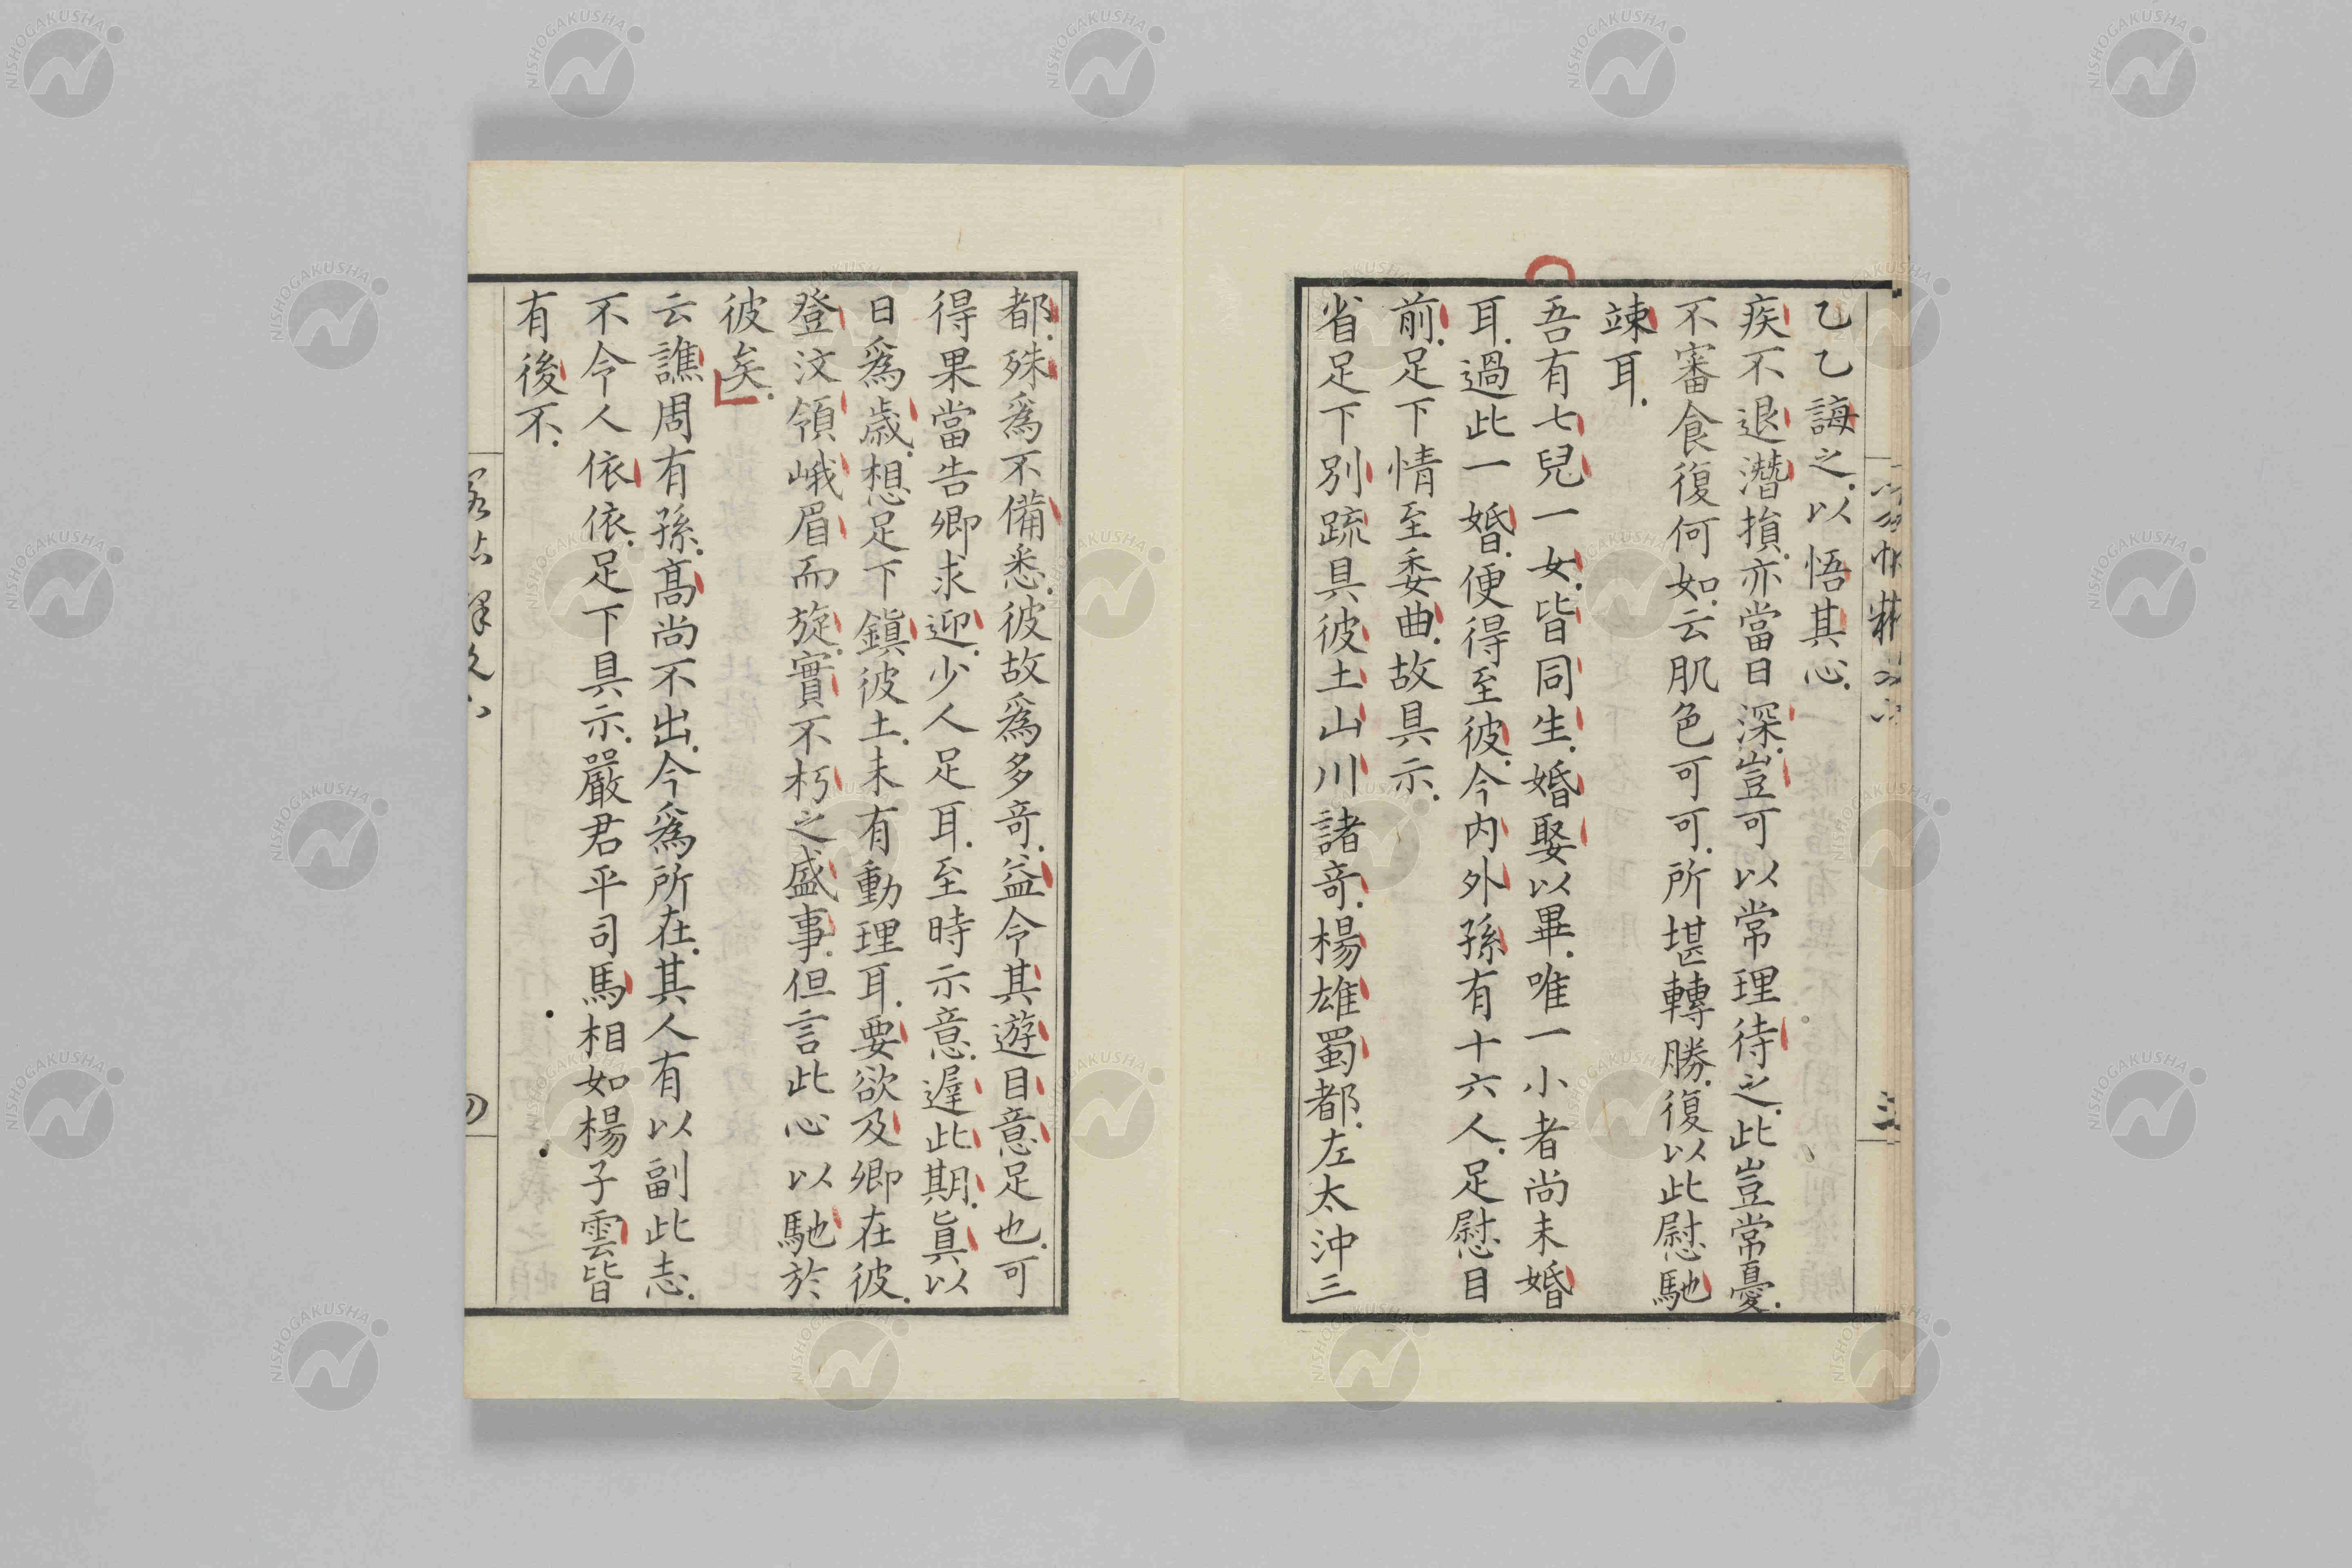 乙乙誨之.以悟其心.
疾不退潛損.亦當日深.豈可以常理待之.此豈常憂.
不審食復何如.云肌色可可.所堪轉勝.復以此慰馳
竦耳.
吾有七兒一女.皆同生.婚娶以畢.唯一小者尚未婚
耳.過此一婚.便得至彼.今内外孫有十六人.足慰目
前.足下情至委曲.故具示.
省足下別疏具彼土山川諸竒.楊雄蜀都.左太沖三
都.殊爲不備悉.彼故爲多竒.益令其遊目意足也.可
得果當告卿求迎.少人足耳.至時示意.遲此期.眞以
日爲歳.想足下鎭彼土.未有動理耳.要欲及卿在彼.
登汶領峨眉而旋.實不朽之盛事.但言此心以馳於
彼矣.
云譙周有孫.髙尚不出.今爲所在.其人有以副此志.
不令人依依.足下具示.嚴君平司馬相如楊子雲皆
有後不.
三
NISHOGAKUSHA